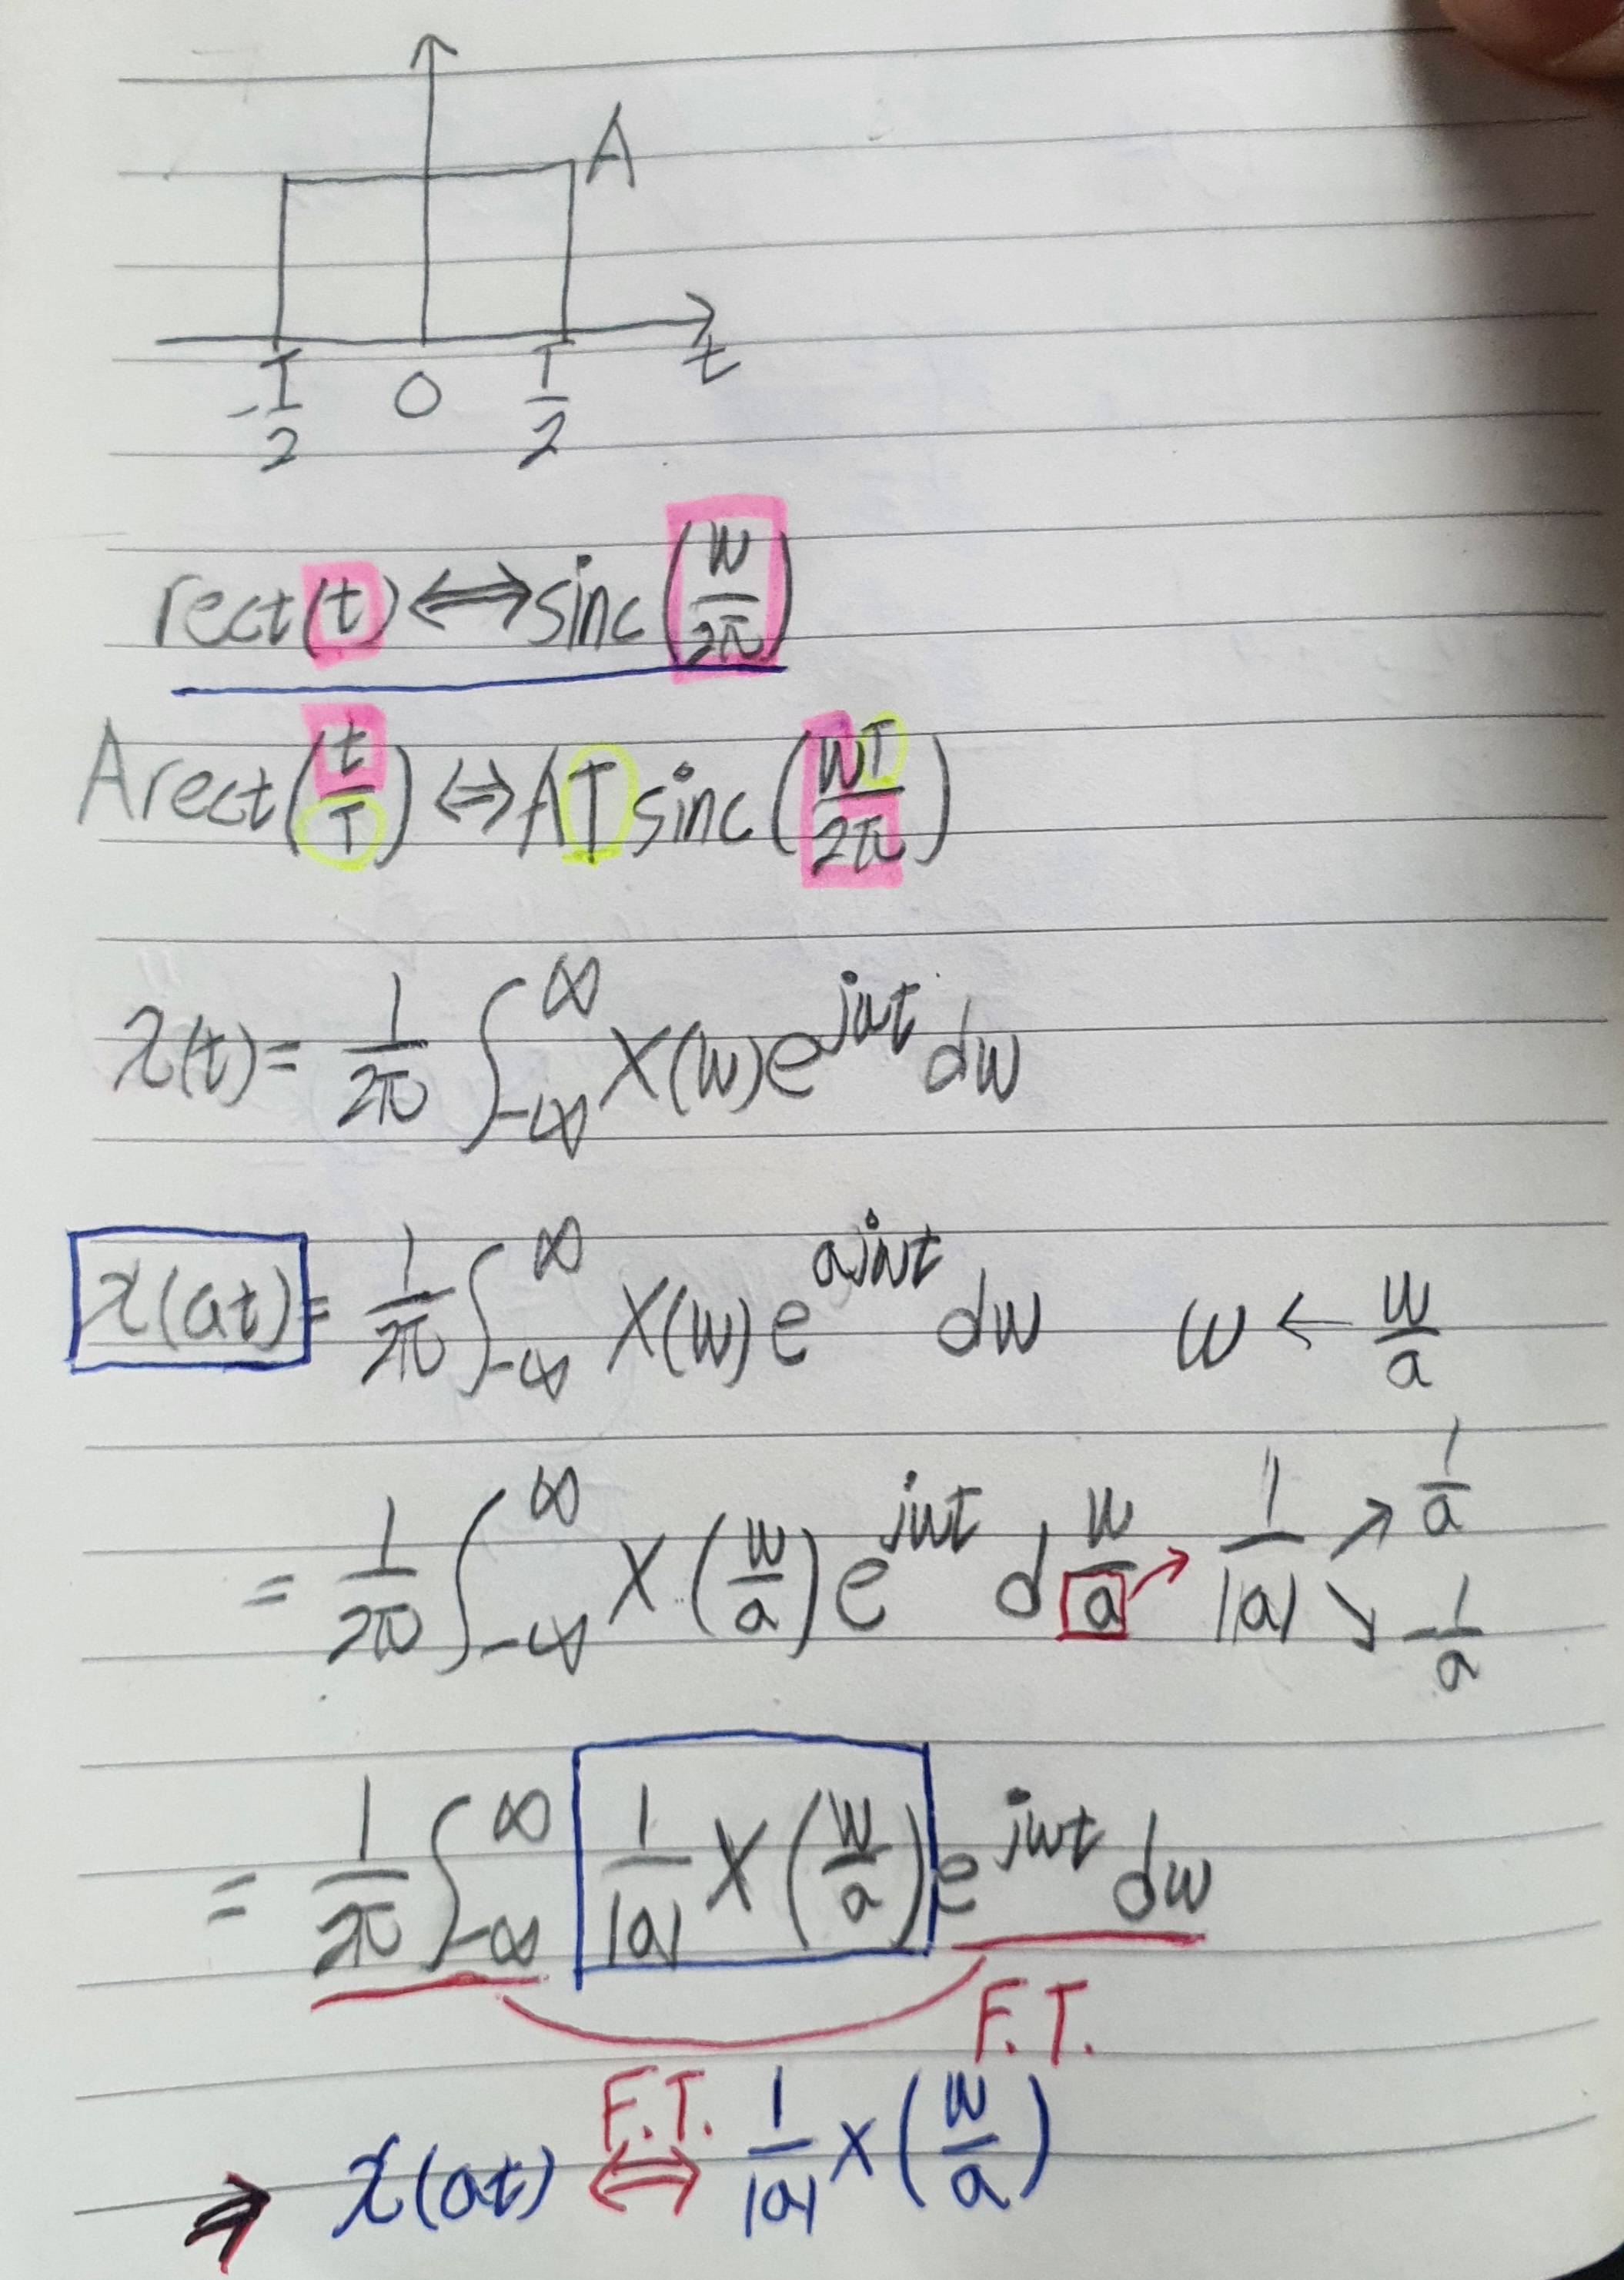 A
-T/2 0 T/2 t
rect(t) ⟺ sinc(w/2π)
A rect(t/T) ⟺ AT sinc(wT/2π)
x(t) = 1/2π ∫_{-∞}^{∞} X(w) e^{jwt} dw
x(at) = 1/2π ∫_{-∞}^{∞} X(w) e^{ajwt} dw w ← w/a
= 1/2π ∫_{-∞}^{∞} X(w/a) e^{jwt} d w/a → 1/|a| ↗ 1/a ↘ -1/a
= 1/2π ∫_{-∞}^{∞} 1/|a| X(w/a) e^{jwt} dw
F.T.
⇒ x(at) F.T. ⟺ 1/|a| X(w/a)